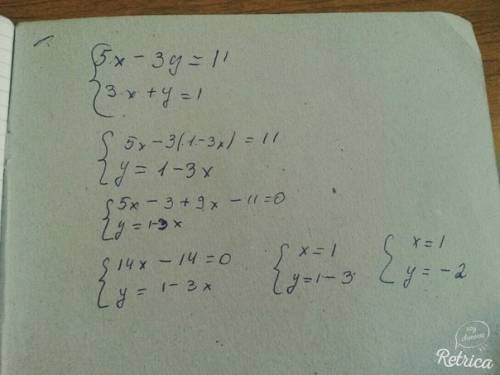 5x - 3y = 11
3x + y = 1
5x - 3(1 - 3x) = 11
y = 1 - 3x
5x - 3 + 9x - 11 = 0
y = 1 - 3x
14x - 14 = 0
y = 1 - 3x
x = 1
y = 1 - 3
x = 1
y = -2
Retrica